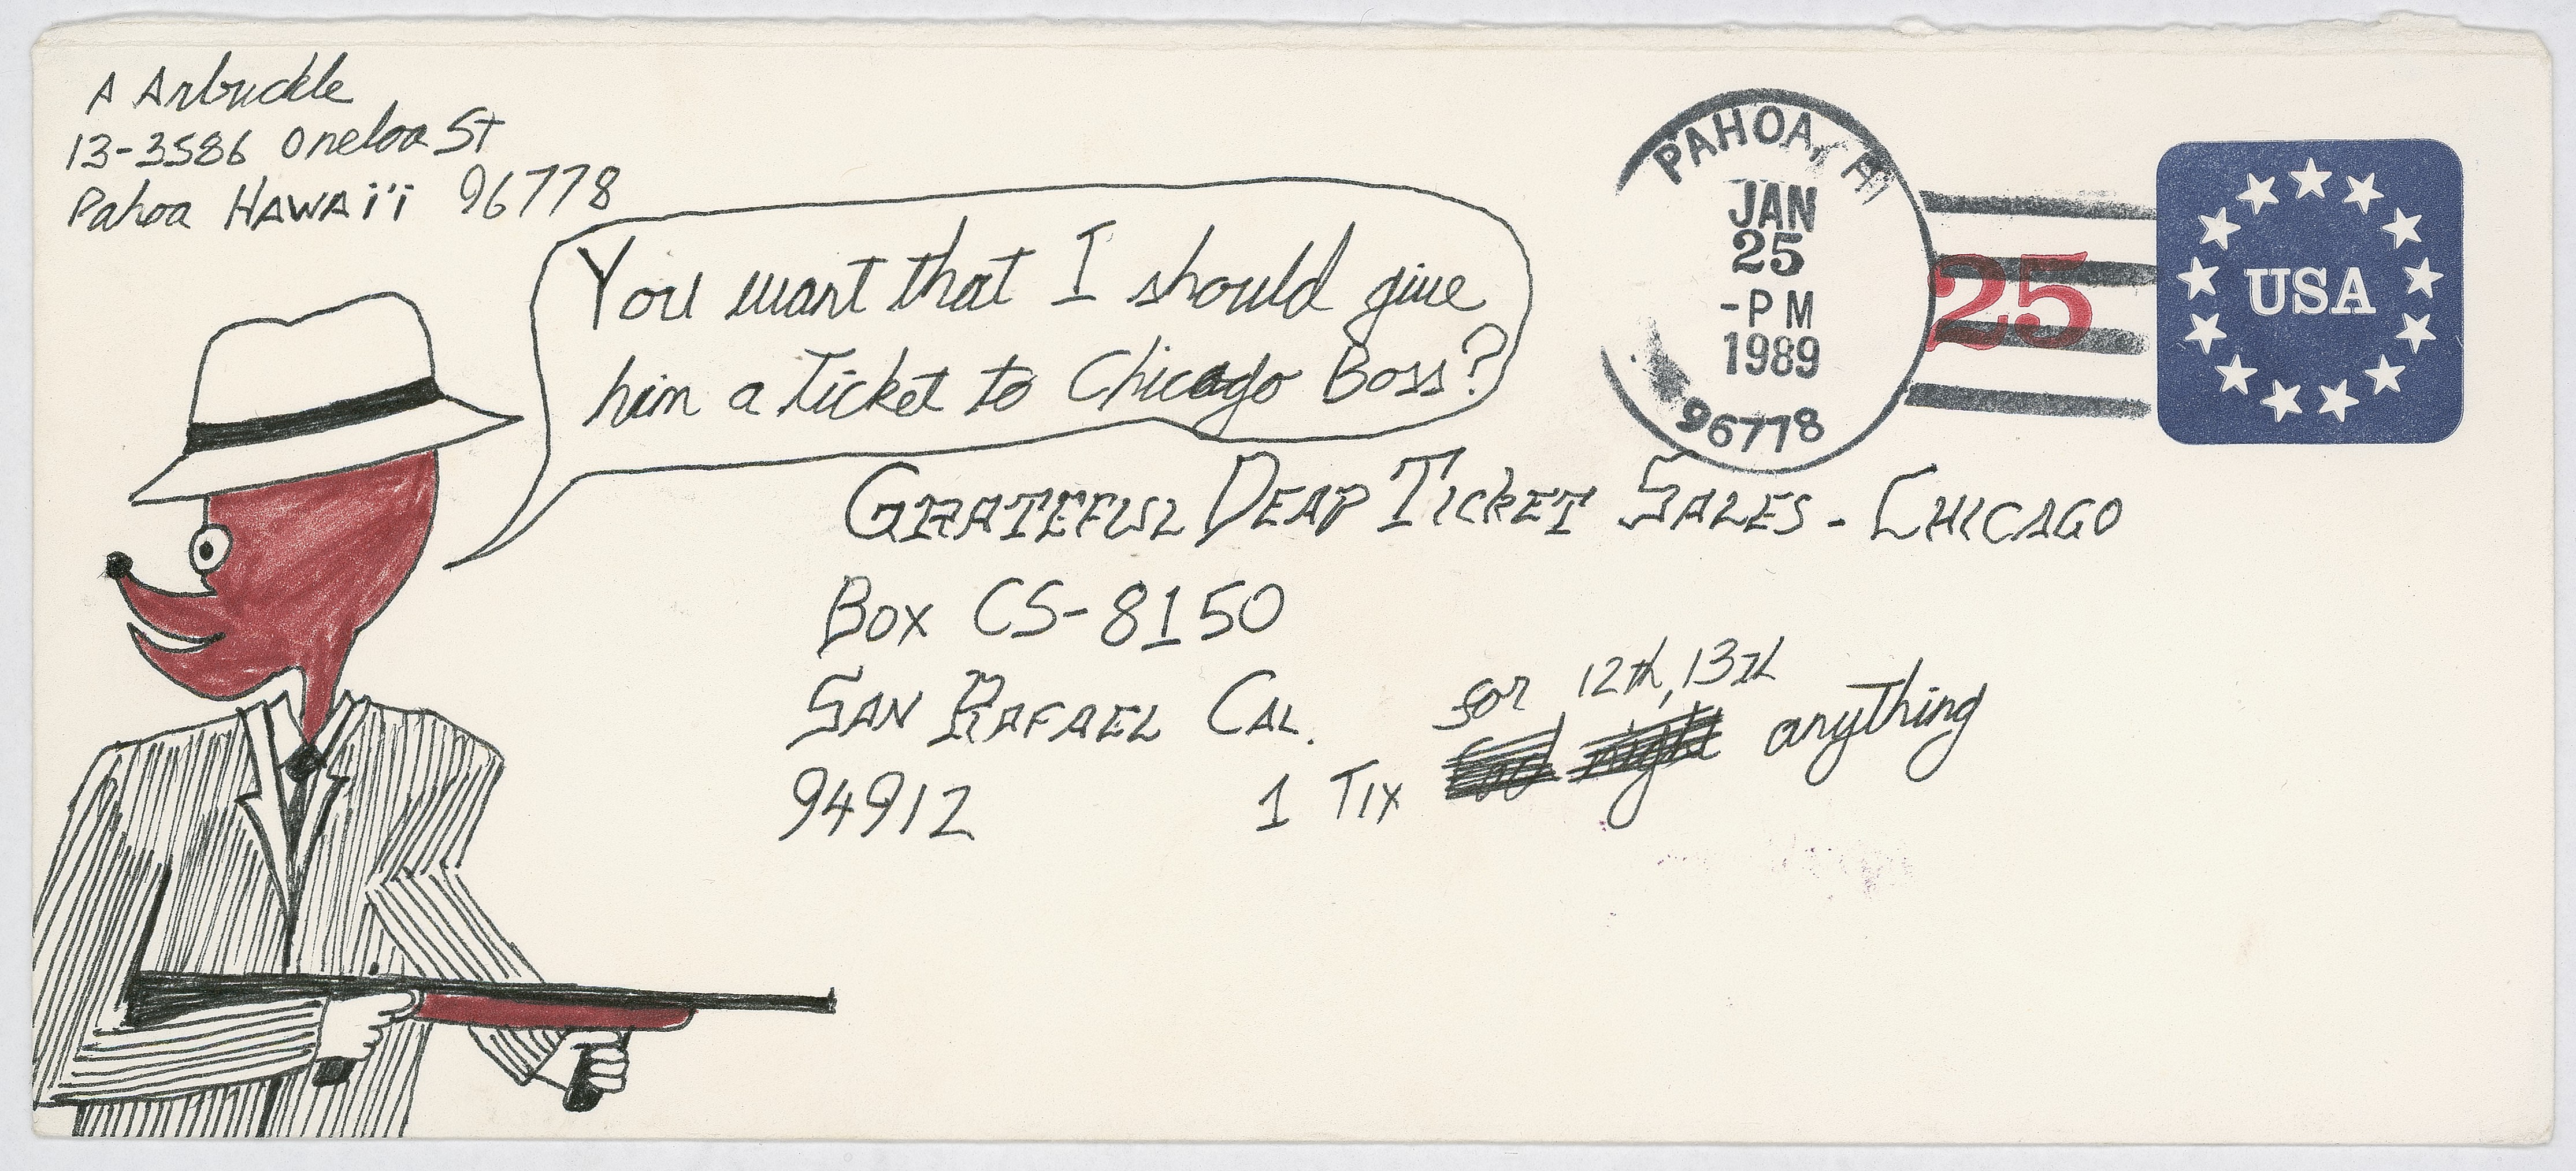 A Arbuckle
13-3586 Oneloa St
Pahoa HAWAi'i 96778
You want that I should give
him a ticket to Chicago Boss?
PAHOA, HI
JAN
25
-PM
1989
96778
25
USA
GRATEFUL DEAD TICKET SALES - CHICAGO
BOX CS-8150
SAN RAFAEL CAL.
94912
for 12th, 13th
1 Tix anything